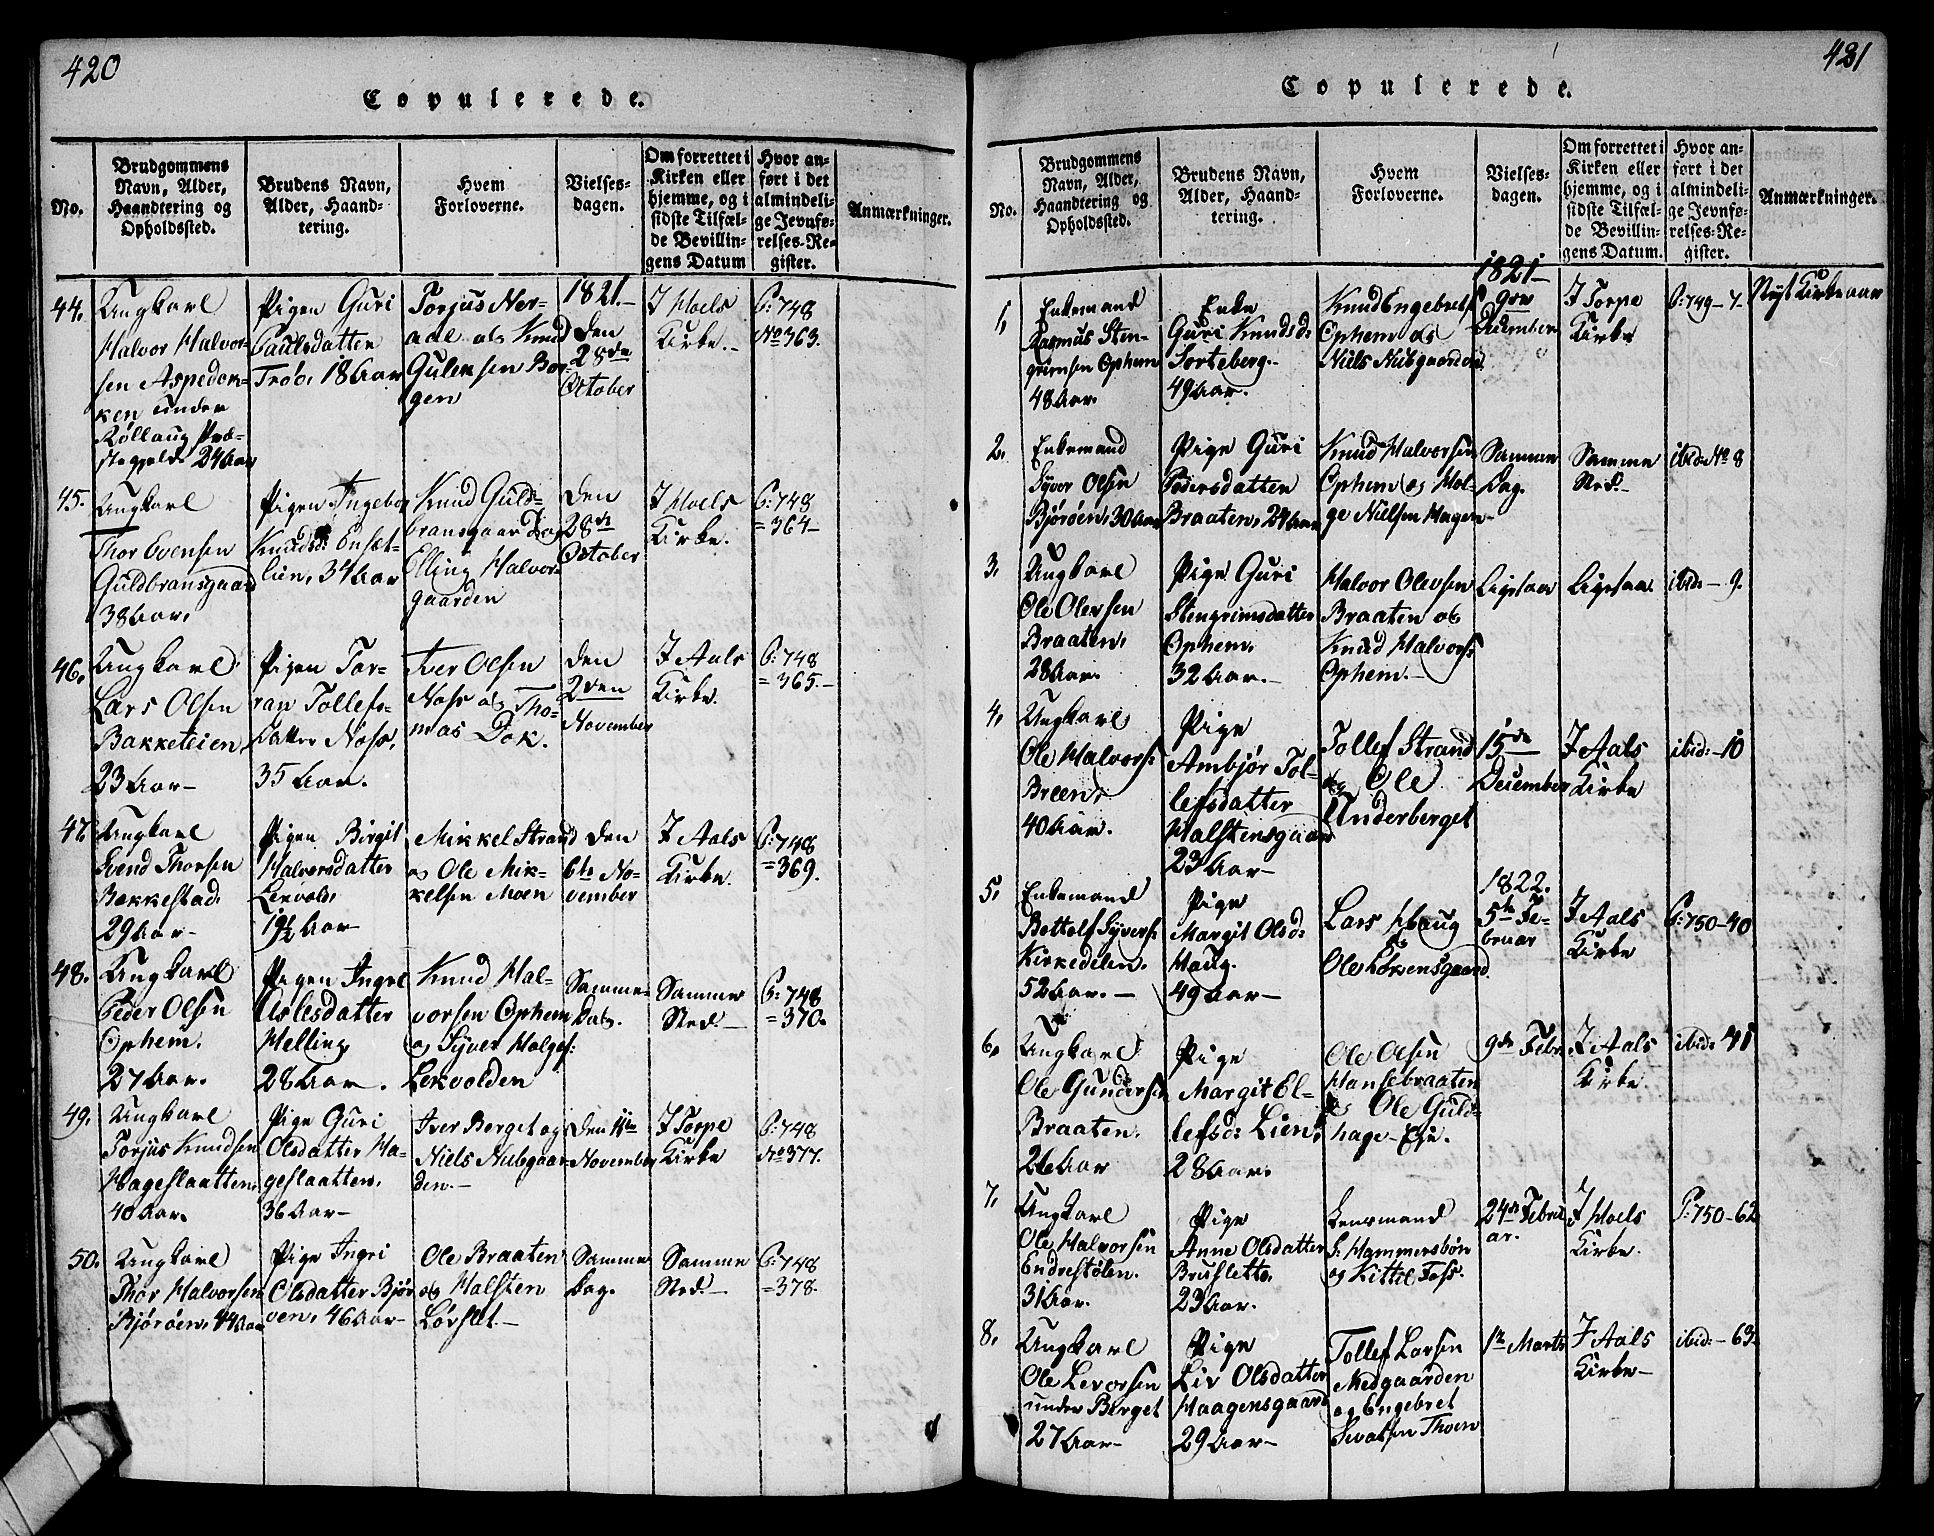 420
Copulerede.
No.
Brudgommens
Navn, Alder,
Haandtering og
Opholdssted.
Brudens Navn,
Alder, Haand-
tering.
Hvem
Forloverne.
Vielses-
dagen.
Om forrettet i
Kirken eller
hjemme, og i
sidste Tilfæl-
de Bevillin-
gens Datum
Hvor an-
ført i det
almindeli-
ge Jevnfø-
relses-Re-
gister.
Anmærkninger.
44.
Ungkarl
Halvor Halvor-
sen Aspedok-
ken under
Rollaug Præ-
stegjeld. 24 Aar
Pigen Guri
Paulsdatten
Trøo, 18 Aar
Torjus Ner-
aal og Knud
Guleksen Bor-
gen
1821.
den
28de
October
I Hoels
Kirke.
P: 748
No 363.
45.
Ungkarl
Thor Evensen
Guldbransgaard
38 Aar.
Pigen Ingebo
Knudsd: Ensæt-
lien, 34 Aar
Knud Guld-
bransgaar og
Elling Halvor-
gaarden
den
28de
October
I Hoels
Kirke.
P: 748
= 364
46.
Ungkarl
Lars Olsen
Bakketeien
23 Aar
Pigen Tor-
ran Tollefs-
datter Noss,
35 Aar.
Iver Olsen
Noss og Tho-
mas Dok.
den
2den
November
I Aals
Kirke.
P: 748
= 365.
47.
Ungkarl
Svend Thorsen
Bakkestad.
29 Aar
Pigen Birgit
Halvorsdatter
Lekvold,
19½ Aar
Mikkel Strand
og Ole Mik-
kelsen Moen
den
6te No-
vember
I Aals
Kirke.
P: 748
= 369.
48.
Ungkarl
Peder Olsen
Ophem.
27 Aar.
Pigen Ingel
Aslesdatter
Helling
28 Aar.
Knud Hal-
vorsen Ophem
og Syver Holges:
Lekvolden
Samme-
Dag.
Samme
Sted.
P: 748
= 370.
49.
Ungkarl
Torjus Knudsen
Hageslaatten.
40 Aar.
Pige Guri
Olsdatter Ha-
geslaatten.
36 Aar
Iver Berget og
Niels Nubgaar-
den.
den 11te
November
I Torpe
Kirke
P: 748
No 377.
50.
Ungkarl
Thor Halvorsen
Bjørøen, 44 Aar
Pige Ingri
Olsdatter Bjør-
øen, 46 Aar
Ole Braaten
og Halsten
Lørslet.
Samme
Dag.
Samme
Sted.
P: 748
= 378.
421
Copulerede.
No.
Brudgommens
Navn, Alder,
Haandtering og
Opholdssted.
Brudens Navn,
Alder, Haand-
tering.
Hvem
Forloverne.
Vielses-
dagen.
Om forrettet i
Kirken eller
hjemme, og i
sidste Tilfæl-
de Bevillin-
gens Datum.
Hvor an-
ført i det
almindeli-
ge Jevnfø-
relses-Re-
gister.
Anmærkninger.
1,
Enkemand
Rasmus Sten-
grimsen Ophem
48 Aar.
Enke
Guri Knudsd:
Sorteberg.
49 Aar.
Knud Engebrets:
Ophem og
Niels Nubgaarden
1821
9de
December
I Torpe
Kirke
P: 749 - 7.
Nyt Kirkeaar
2.
Enkemand
Syver Olsen
Bjørøen, 30 Aar
Pige Guri
Pedersdatten
Braaten, 24 Aar
Knud Halvorsen
Ophem og Hol-
ge Nielsen Hagen
Samme
Dag.
Samme
Sted.
ibid: No 8
3.
Ungkarl
Ole Olevsen
Braaten,
28 Aar.
Pige Guri
Stengrimsdatter
Ophem.
32 Aar.
Halvor Olevsen
Braaten og
Knud Halvors:
Ophem.
Ligesaa
Ligesaa
ibid: - 9.
4,
Ungkarl
Ole Halvors:
Breen,
40 Aar.
Pige
Ambjør Tol-
lefsdatter
Halstensgaard
23 Aar
Tollef Strand
og Ole
Underberget
15de
December
I Aals
Kirke
ibid: - 10
5,
Enkemand
Bottolf Syvers:
Kirkedelen.
52 Aar.
Pige
Margit Olsd:
Haug.
49 Aar
Lars Haug
&
Ole Lørensgaard
1822.
5te Fe-
bruar
I Aals
Kirke
P: 750 - 40
6,
Ungkarl
Ole Gundersen
Braaten.
26 Aar
Pige
Margit El-
lefsd: Lien,
28 Aar.
Ole Olsen
Hansebraaten
og Ole Guld-
hage-Eje.
9de Febr.
I Aals
Kirke.
ibid: 41
7,
Ungkarl
Ole Halvorsen
Endrestølen.
31 Aar.
Pige
Anne Olsdatter
Brusletto,
23 Aar.
Lensmand
S. Hammersbøn
og Kittil Foss.
24de Febru
ar.
I Hoels
Kirke.
P: 750 - 62
8.
Ungkarl
Ole Levorsen
under Berget
27 Aar
Pige
Liv Olsdatter
Haagensgaard
29 Aar
Tollef Larsen
Medgaarden
og Engebret
Sivatsen Thoen
1ste Marts
I Aals
Kirke
ibid: - 63.